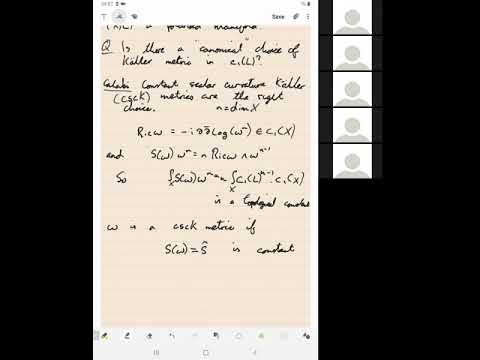 Save
(X,L) is polarised manifold.
Q Is there a "canonical" choice of
Kähler metric in c₁(L)?
Calabi Constant scalar curvature Kähler
(cscK) metrics are the right
choice. n = dim X
Ric ω = -i∂∂̄ log(ωⁿ) ∈ c₁(X)
and S(ω) ωⁿ = n Ric ω ∧ ωⁿ⁻¹
So ∫_X S(ω) ωⁿ = n ∫_X c₁(L)ⁿ⁻¹ . c₁(X)
is a topological constant
ω is a cscK metric if
S(ω) = Ŝ is constant